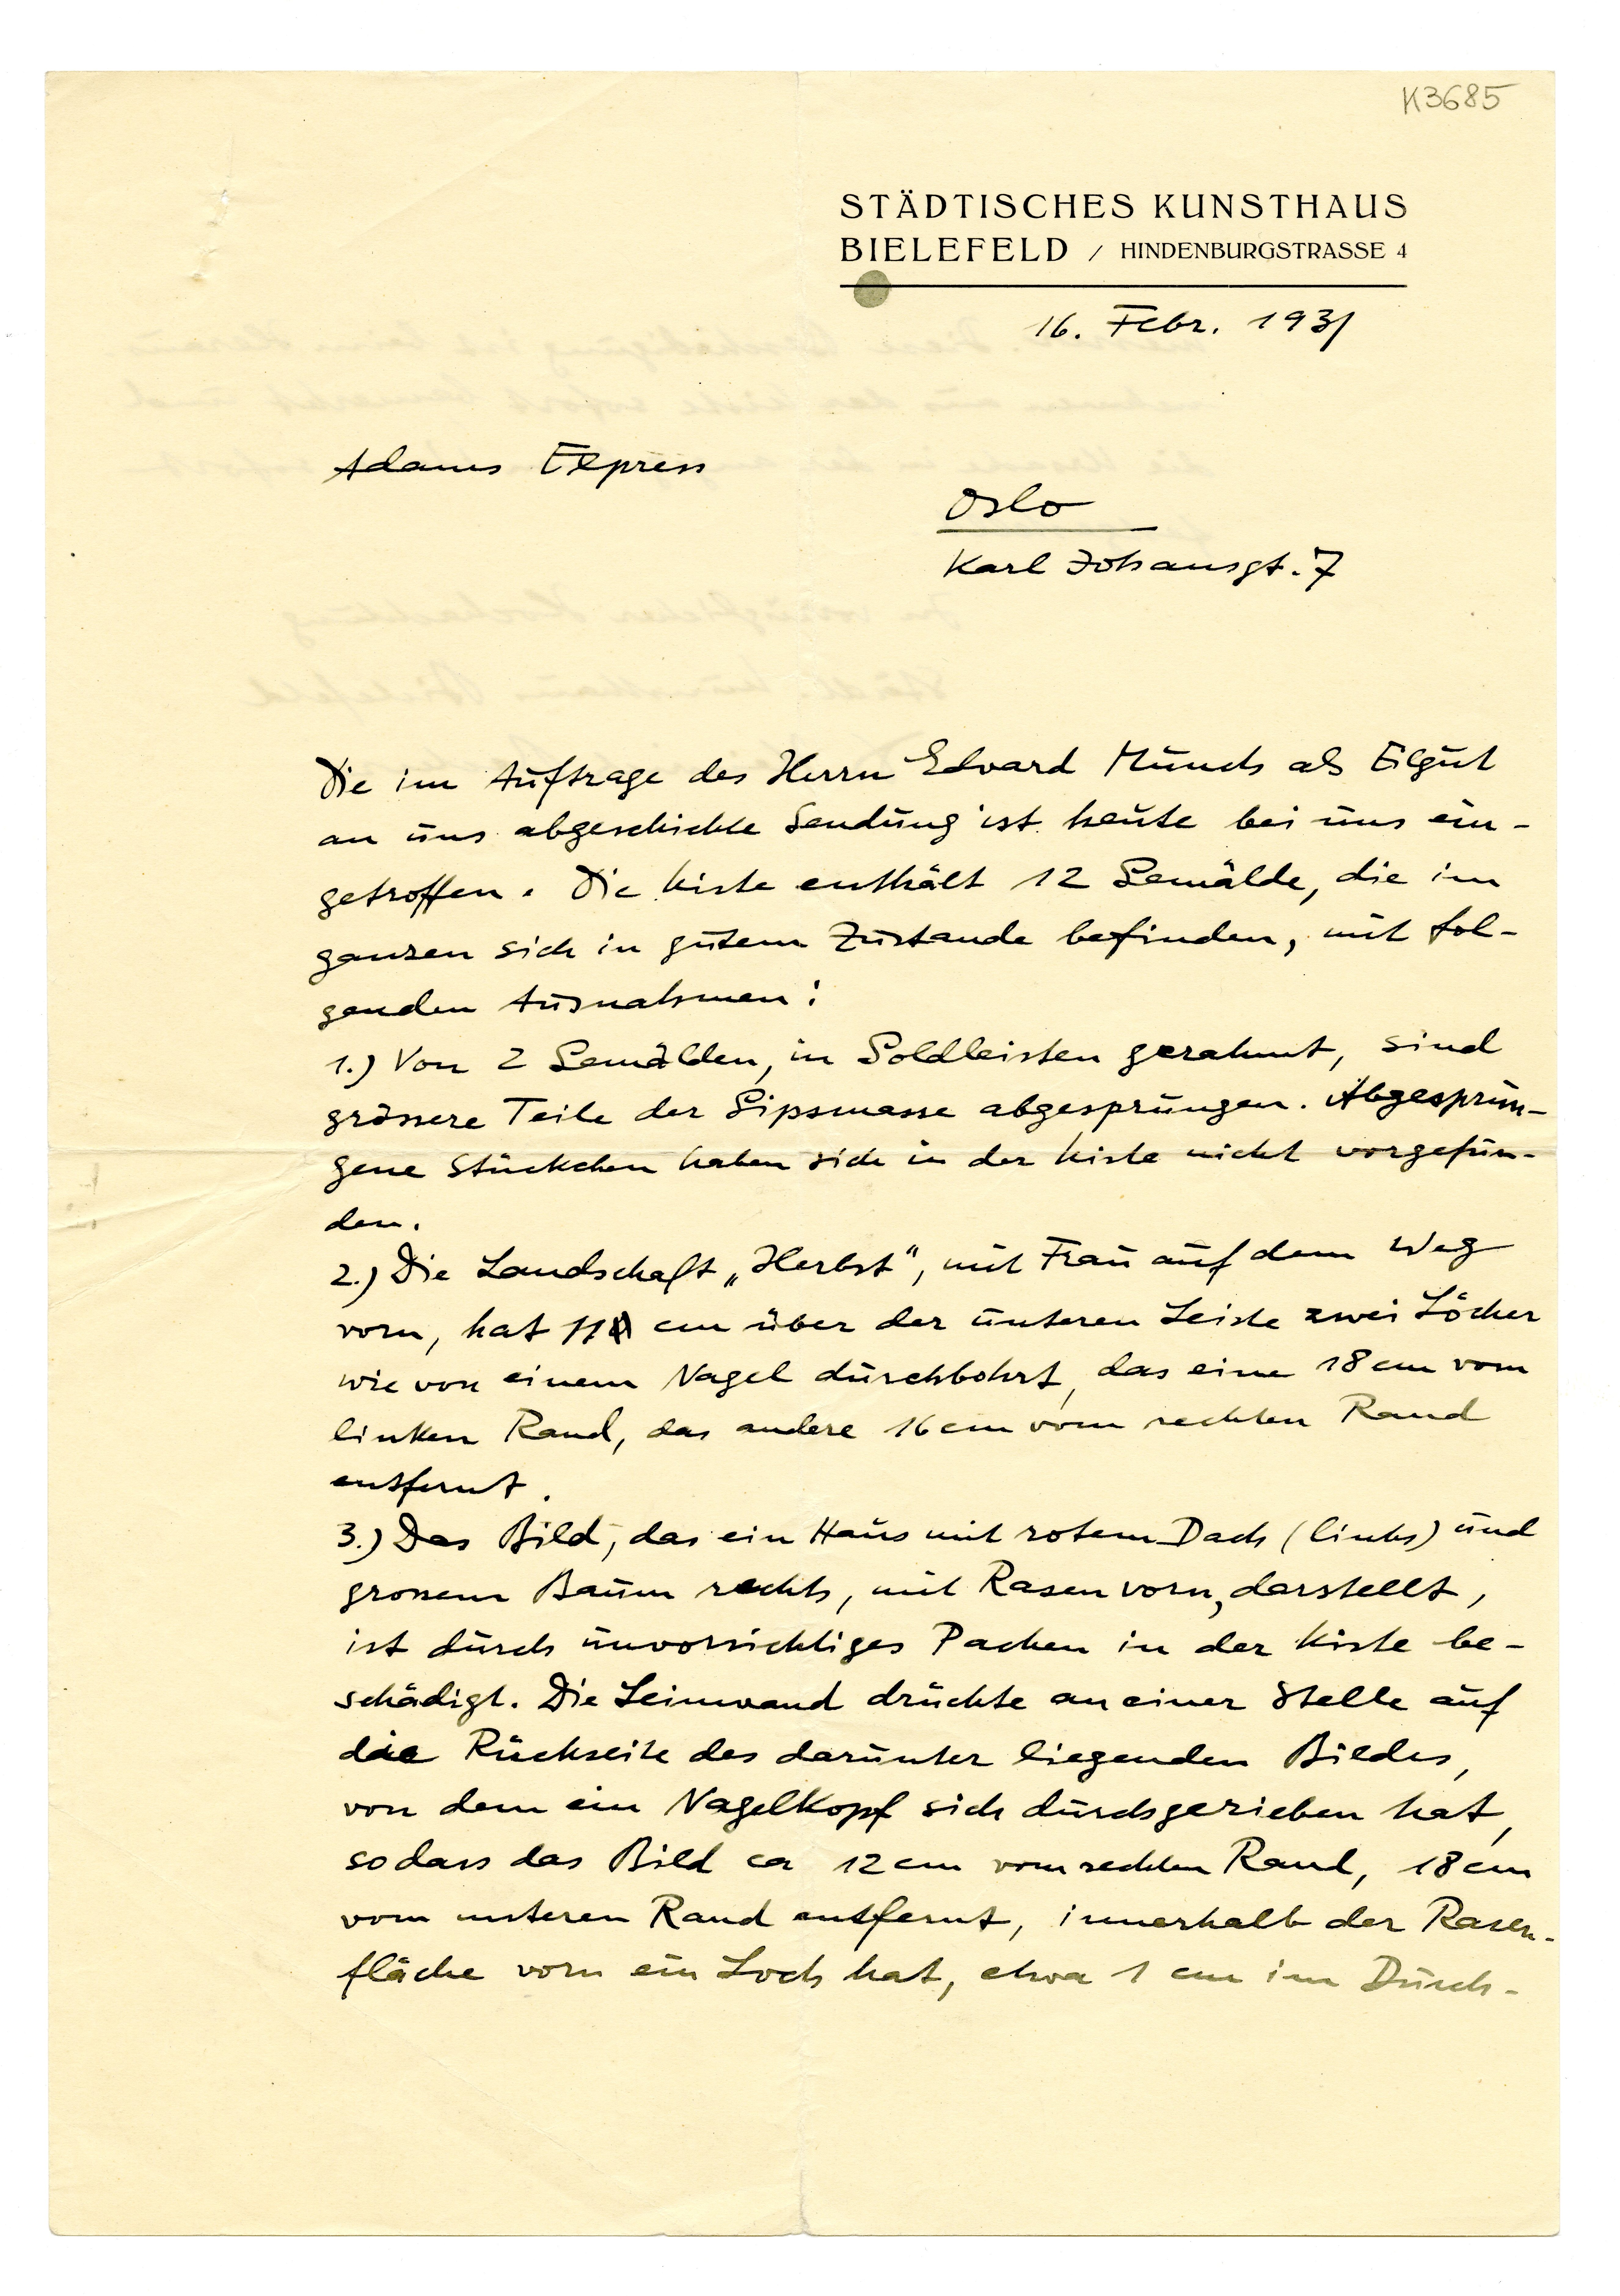 K3685
STÄDTISCHES KUNSTHAUS
BIELEFELD / HINDENBURGSTRASSE 4
16. Febr. 1931
Adams Express
Oslo
Karl Johansgt. 7
Die im Auftrage des Herrn Edvard Munch als Eilgut
an uns abgeschickte Sendung ist heute bei uns ein-
getroffen. Die Kiste enthält 12 Gemälde, die im
ganzen sich in gutem Zustande befinden, mit fol-
genden Ausnahmen:
1.) Von 2 Gemälden, in Goldleisten gerahmt, sind
grössere Teile der Gipsmasse abgesprungen. Abgesprun-
gene Stückchen haben sich in der Kiste nicht vorgefun-
den.
2.) Die Landschaft „Herbst", mit Frau auf dem Weg
vorn, hat 11 cm über der unteren Leiste zwei Löcher
wie von einem Nagel durchbohrt, das eine 18 cm vom
linken Rand, das andere 16 cm vom rechten Rand
entfernt.
3.) Das Bild, das ein Haus mit rotem Dach (links) und
grossem Baum rechts, mit Rasen vorn, darstellt,
ist durch unvorsichtiges Packen in der Kiste be-
schädigt. Die Leinwand drückte an einer Stelle auf
die Rückseite des darunter liegenden Bildes,
von dem ein Nagelkopf sich durchgerieben hat,
sodass das Bild ca 12 cm vom rechten Rand, 18 cm
vom unteren Rand entfernt, innerhalb der Rasen-
fläche vorn ein Loch hat, etwa 1 cm im Durch-